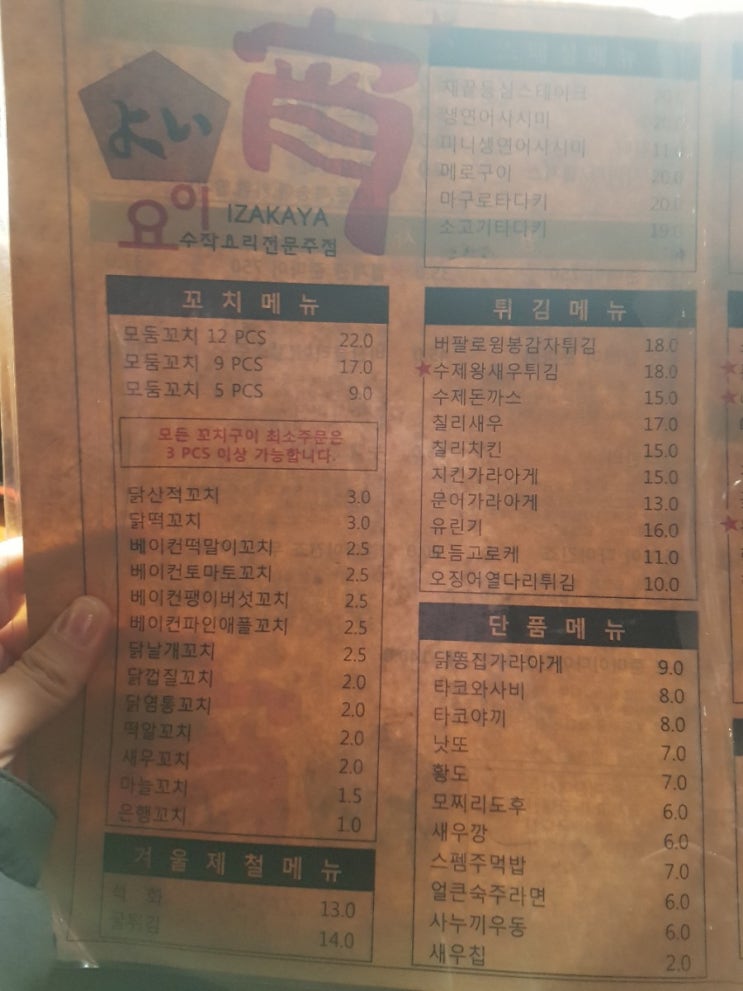 よい
宵
요이 IZAKAYA
수작요리전문주점
꼬치메뉴
모둠꼬치 12 PCS 22.0
모둠꼬치 9 PCS 17.0
모둠꼬치 5 PCS 9.0
모든 꼬치구이 최소주문은
3 PCS 이상 가능합니다.
닭산적꼬치 3.0
닭떡꼬치 3.0
베이컨떡말이꼬치 2.5
베이컨토마토꼬치 2.5
베이컨팽이버섯꼬치 2.5
베이컨파인애플꼬치 2.5
닭날개꼬치 2.5
닭껍질꼬치 2.0
닭염통꼬치 2.0
떡알꼬치 2.0
새우꼬치 2.0
마늘꼬치 1.5
은행꼬치 1.0
겨울제철메뉴
석 화 13.0
굴튀김 14.0
채끝등심스테이크
생연어사시미
미니생연어사시미
메로구이 20.0
마구로타다키 20.0
소고기타다키 19.0
튀김메뉴
버팔로윙봉감자튀김 18.0
수제왕새우튀김 18.0
수제돈까스 15.0
칠리새우 17.0
칠리치킨 15.0
치킨가라아게 15.0
문어가라아게 13.0
유린기 16.0
모듬고로케 11.0
오징어열다리튀김 10.0
단품메뉴
닭똥집가라아게 9.0
타코와사비 8.0
타코야끼 8.0
낫또 7.0
황도 7.0
모찌리도후 6.0
새우깡 6.0
스펨주먹밥 7.0
얼큰숙주라면 6.0
사누끼우동 6.0
새우칩 2.0